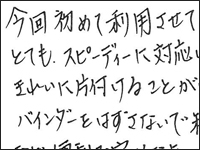 今回初めて利用させて
とても、スピーディーに対応し
きれいに片付けることが
バインダーをはずさないで